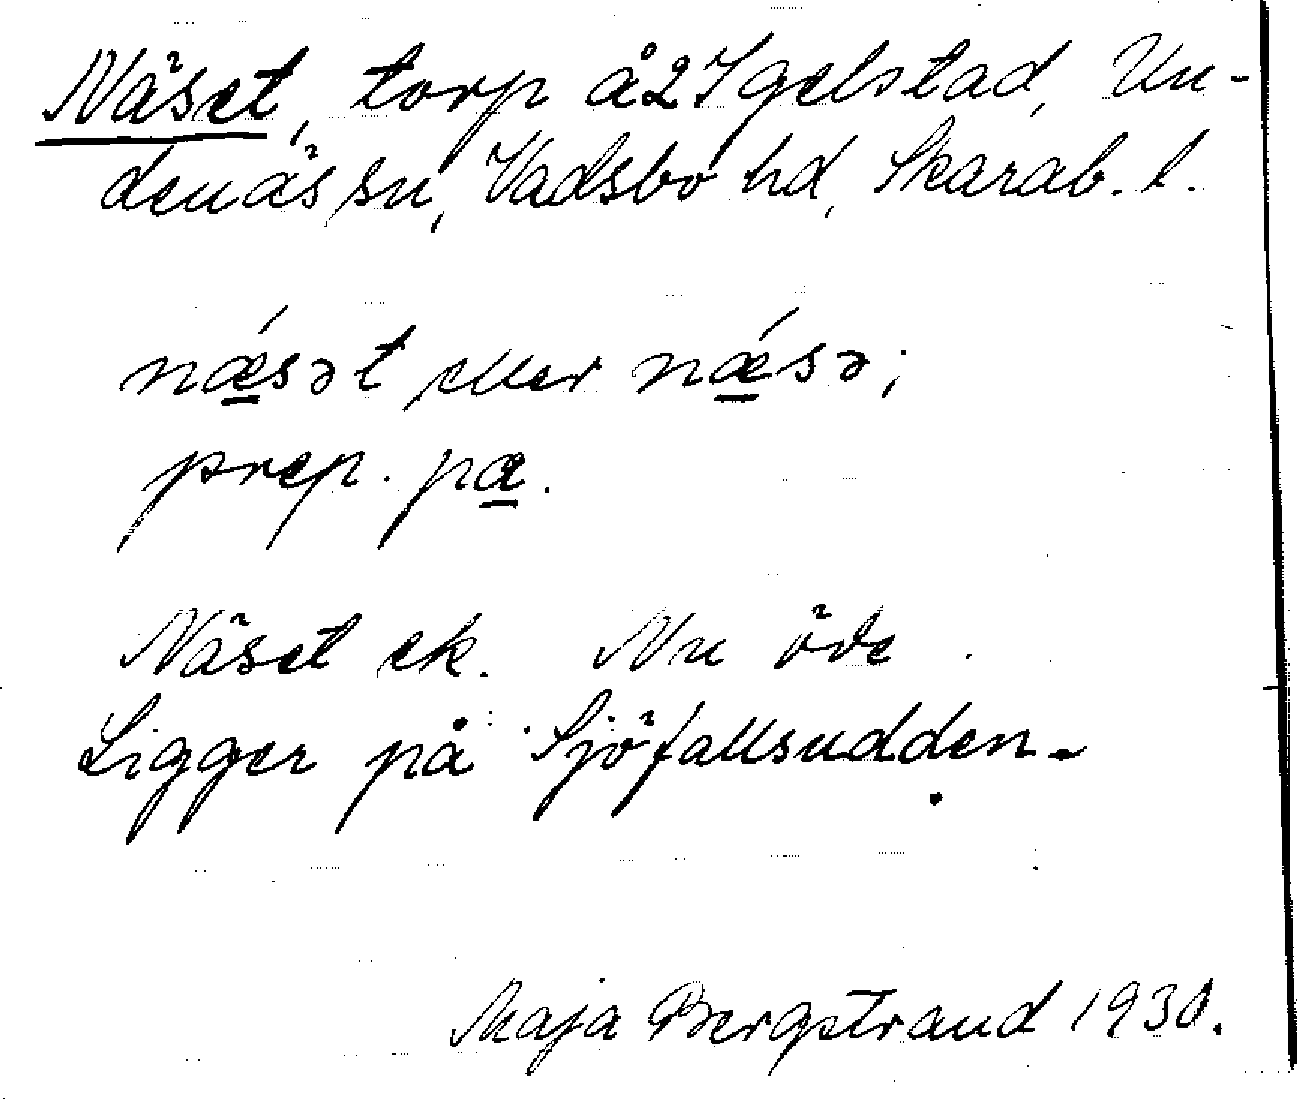 Näset, torp å 2 Igelstad, Un-
denäs sn, Vadsbo hd, Skarab. l.
nǽ̱sət eller nǽ̱sə;
prep. pa̱.
Näset ek. Nu öde.
Ligger på Sjöfallsudden.
Maja Bergstrand 1930.